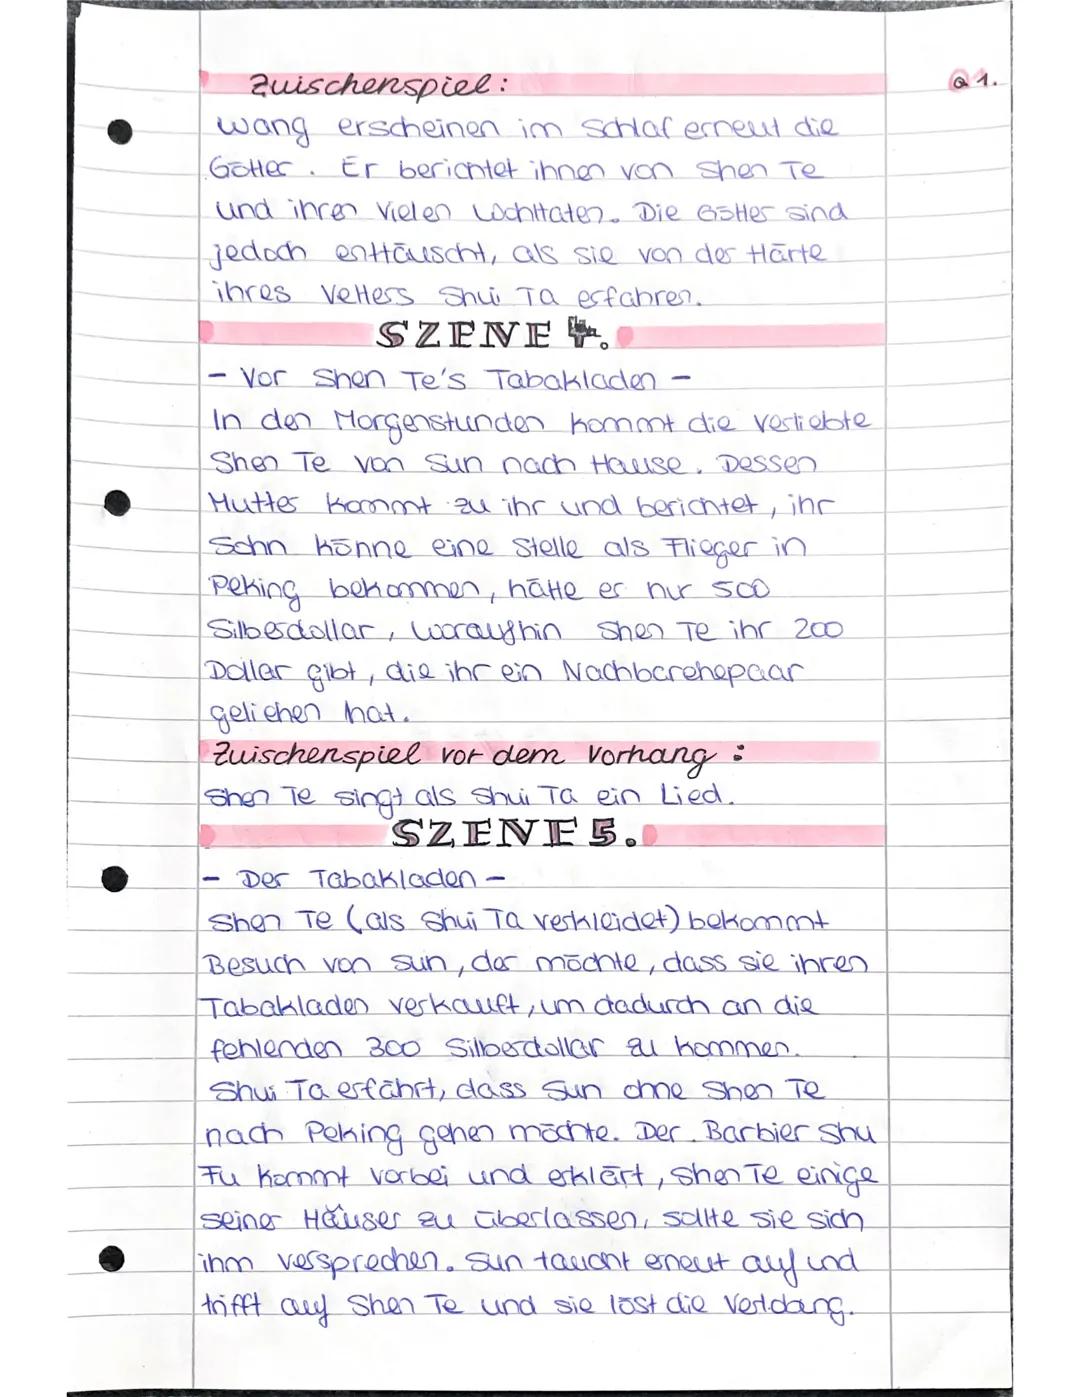 Zwischenspiel: Q1.
Wang erscheinen im Schlaf erneut die
Götter. Er berichtet ihnen von Shen Te
und ihren vielen Wohltaten. Die Götter sind
jedoch enttäuscht, als sie von der Härte
ihres Vetters Shui Ta erfahren.
SZENE 4.
- Vor Shen Te's Tabakladen -
In den Morgenstunden kommt die verliebte
Shen Te von Sun nach Hause. Dessen
Mutter kommt zu ihr und berichtet, ihr
Sohn könne eine Stelle als Flieger in
Peking bekommen, hätte er nur 500
Silberdollar, woraufhin Shen Te ihr 200
Dollar gibt, die ihr ein Nachbarehepaar
geliehen hat.
Zwischenspiel vor dem Vorhang:
Shen Te singt als Shui Ta ein Lied.
SZENE 5.
- Der Tabakladen -
Shen Te (als Shui Ta verkleidet) bekommt
Besuch von Sun, der möchte, dass sie ihren
Tabakladen verkauft, um dadurch an die
fehlenden 300 Silberdollar zu kommen.
Shui Ta erfährt, dass Sun ohne Shen Te
nach Peking gehen möchte. Der Barbier Shu
Fu kommt vorbei und erklärt, Shen Te einige
seiner Häuser zu überlassen, sollte sie sich
ihm versprechen. Sun taucht erneut auf und
trifft auf Shen Te und sie löst die